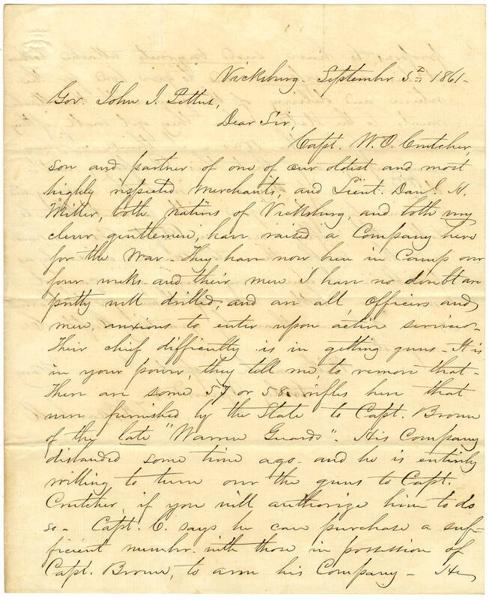 Vicksburg. September 5th 1861-
Gov. John J. Pettus,
Dear Sir,
Capt. W. O. Crutcher,
son and partner of one of our oldest and most
highly respected merchants, and Lieut. Danl. H.
Miller, both natives of Vicksburg, and both very
clever gentlemen, have raised a Company here
for the War - They have now been in Camp over
four weeks and their men I have no doubt are
pretty well drilled, and are all, officers and
men, anxious to enter upon active service -
Their chief difficulty is in getting guns - It is
in your power, they tell me, to remove that -
There are some 57 or 58 rifles here that
were furnished by the State to Capt. Brown
of the late "Warren Guards". His Company
disbanded some time ago and he is entirely
willing to turn over the guns to Capt.
Crutcher, if you will authorize him to do
so - Capt. C. says he can purchase a suf-
ficient number with those in possession of
Capt. Brown, to arm his Company - He